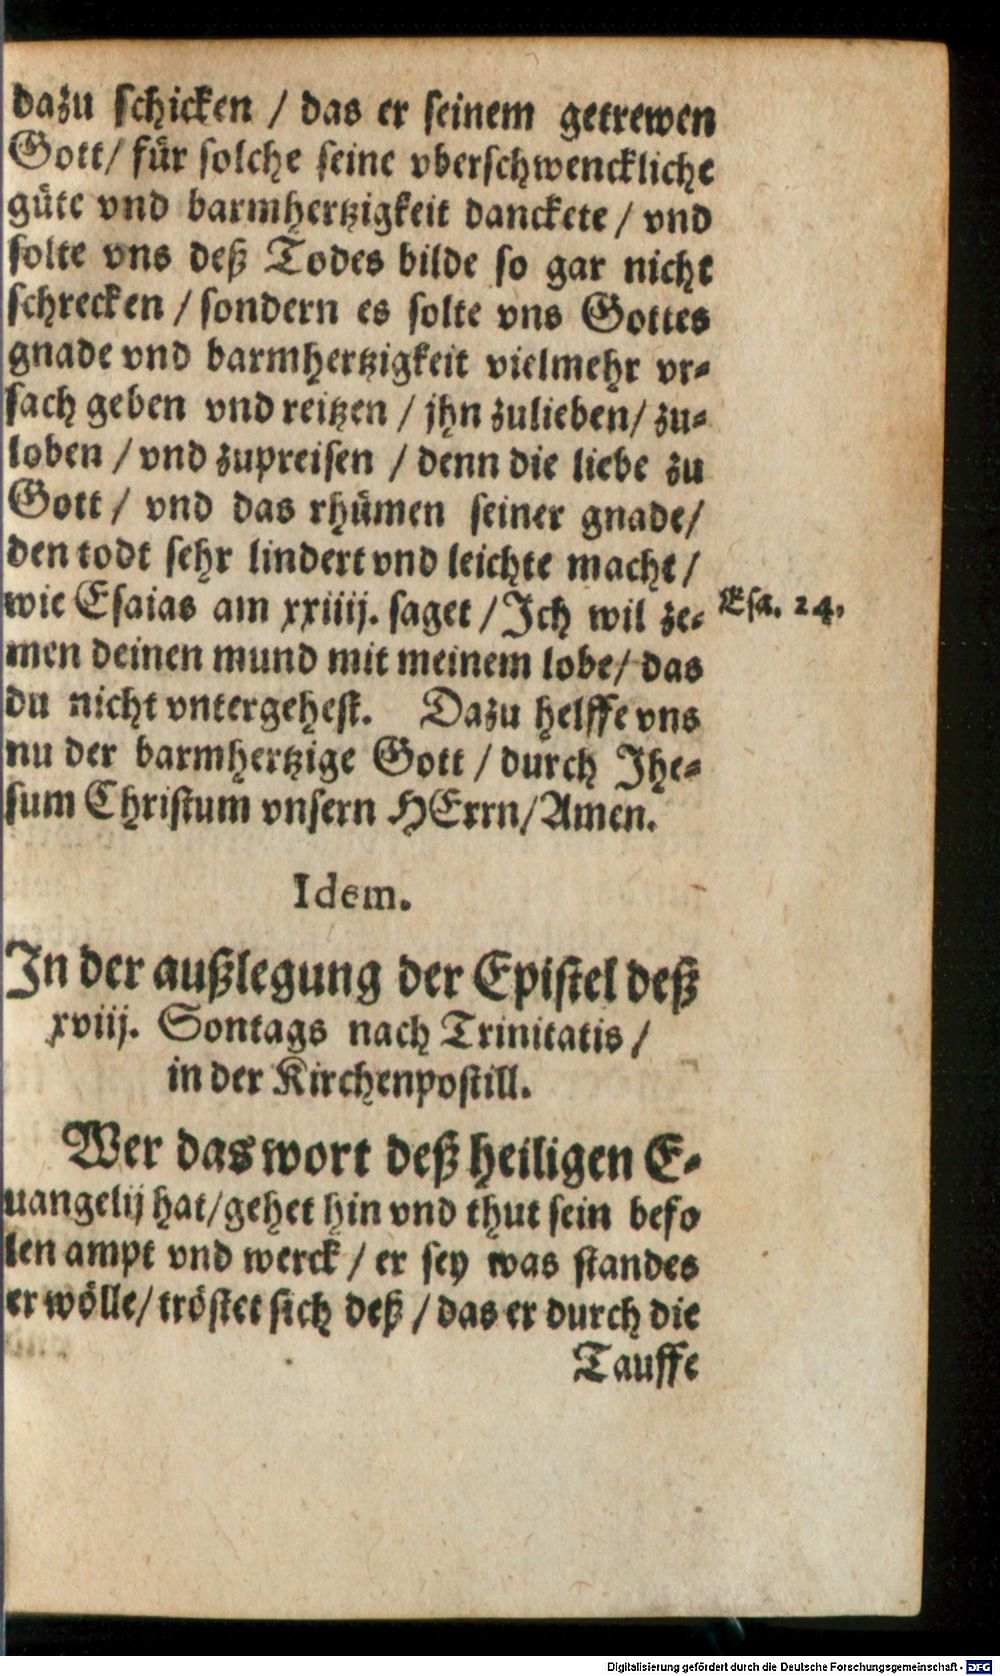 dazu schicken / das er seinem getrewen
Gott / für solche seine vberschwenckliche
güte vnd barmhertzigkeit danckete / vnd
solte vns deß Todes bilde so gar nicht
schrecken / sondern es solte vns Gottes
gnade vnd barmhertzigkeit vielmehr vr-
sach geben vnd reitzen / jhn zulieben / zu-
loben / vnd zupreisen / denn die liebe zu
Gott / vnd das rhümen seiner gnade /
den todt sehr lindert vnd leichte macht /
wie Esaias am xxiiij. saget / Ich wil ze-
Esa. 24.
men deinen mund mit meinem lobe / das
du nicht vntergehest. Dazu helffe vns
nu der barmhertzige Gott / durch Jhe-
sum Christum vnsern HErrn / Amen.
Idem.
In der außlegung der Epistel deß
xviij. Sontags nach Trinitatis /
in der Kirchenpostill.
Wer das wort deß heiligen E-
uangelij hat / gehet hin vnd thut sein befo
len ampt vnd werck / er sey was standes
er wölle / tröstet sich deß / das er durch die
Tauffe
Digitalisierung gefördert durch die Deutsche Forschungsgemeinschaft - DFG